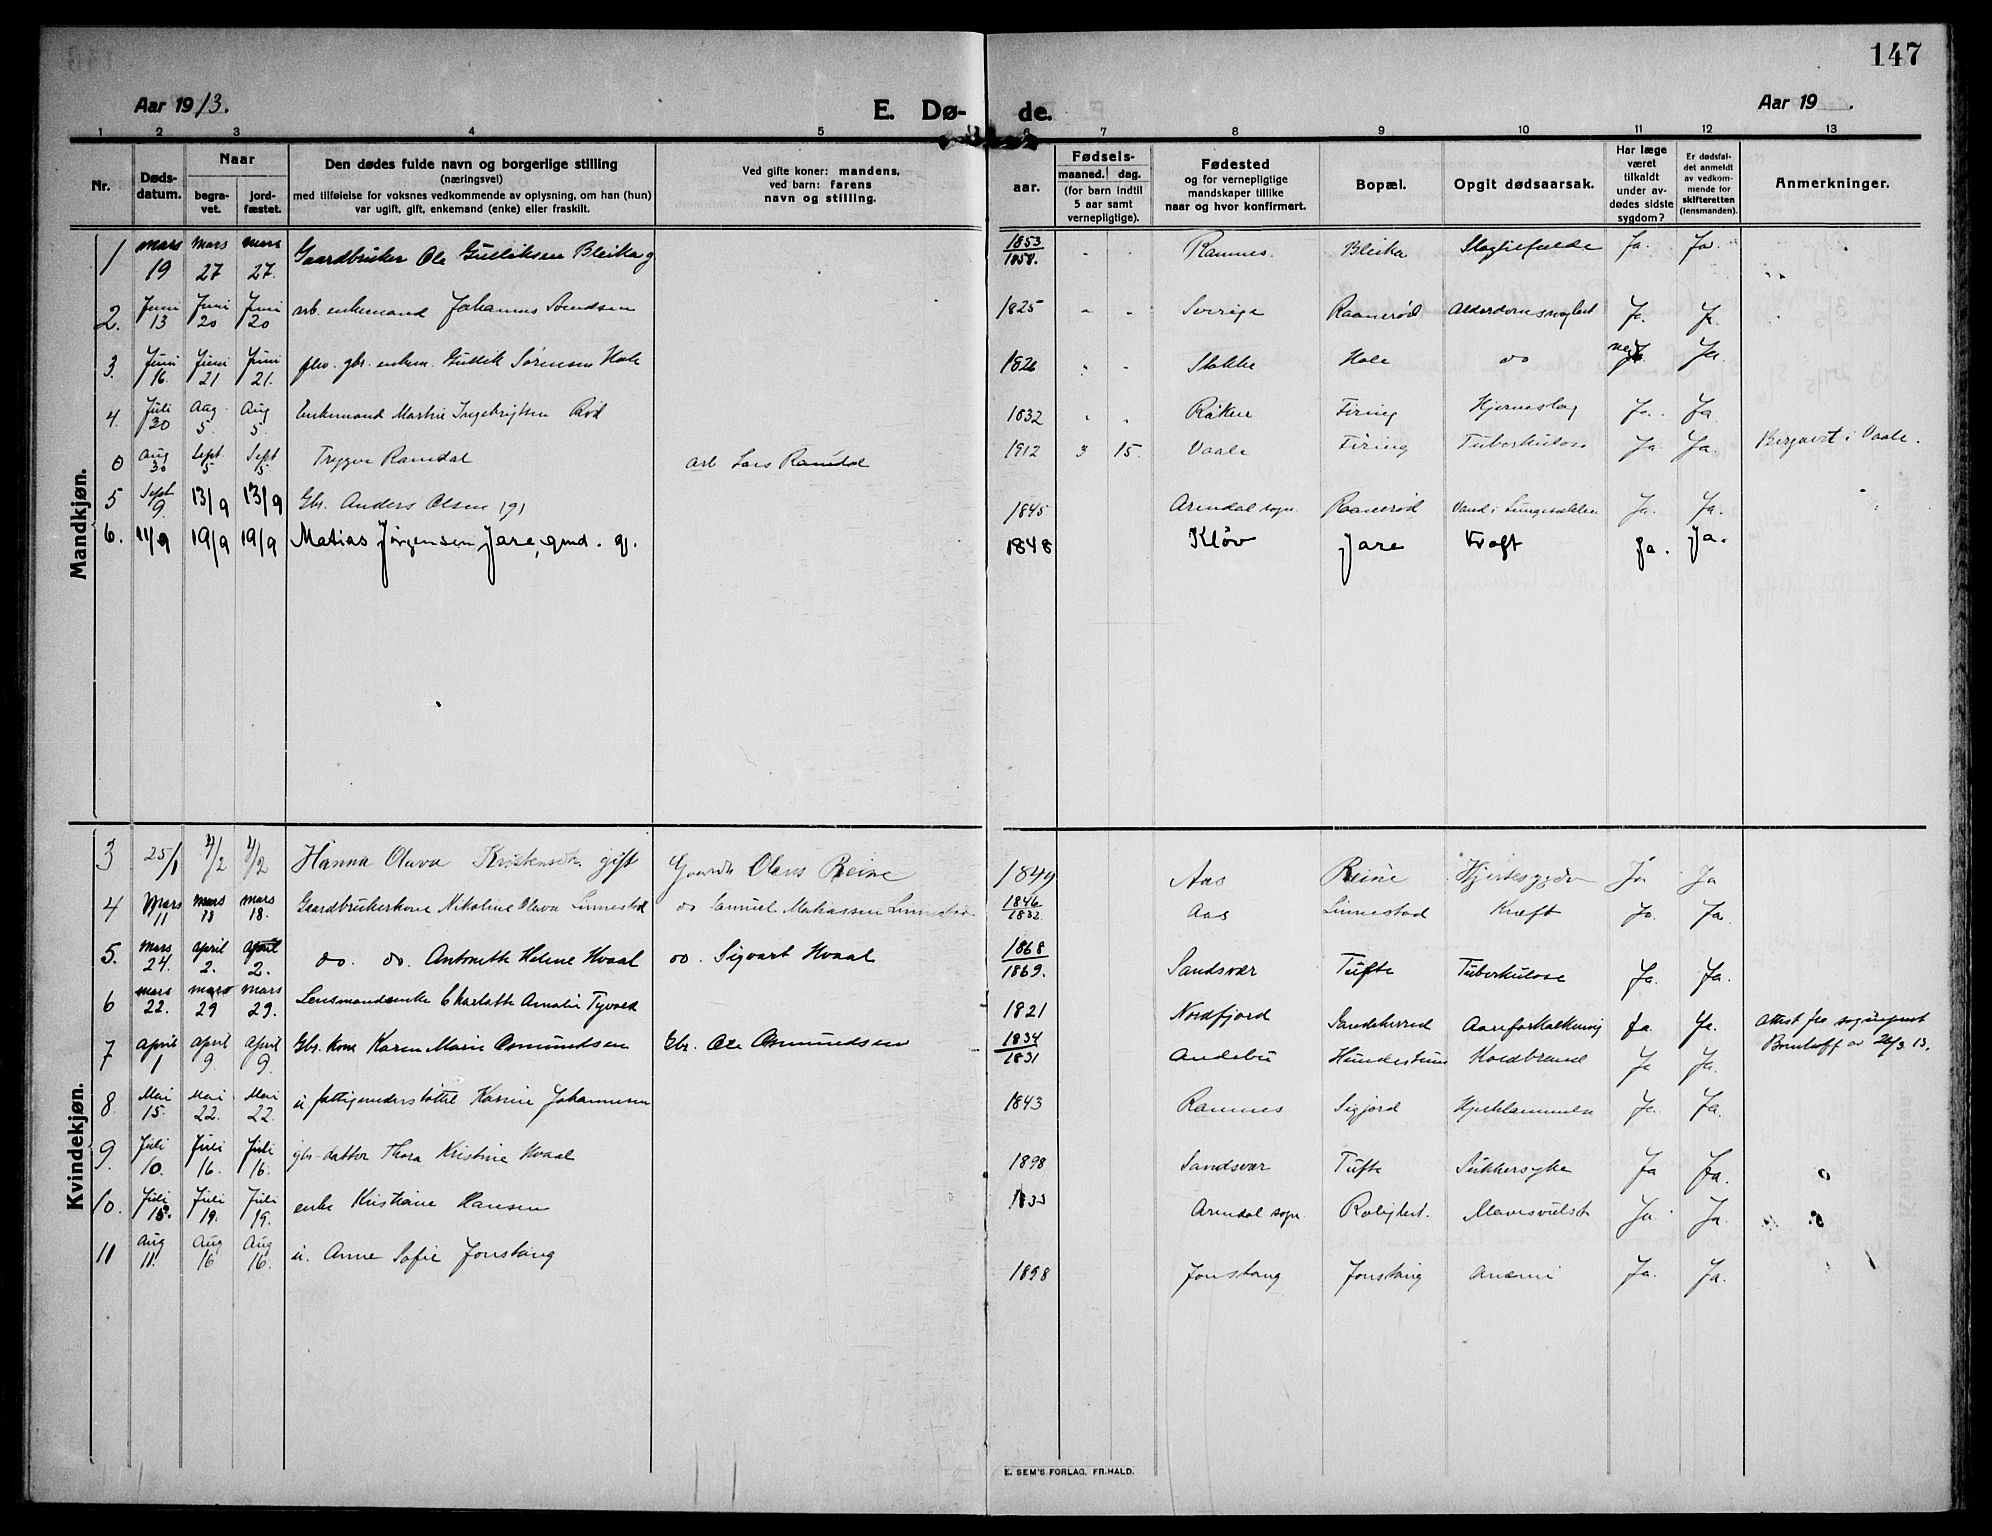 147
Aar 1913.
E. Dø- de.
Aar 19 .
1 2 3 4 5 6 7 8 9 10 11 12 13
Nr.
Døds-
datum.
Naar
begra-
vet.
jord-
fæstet.
Den dødes fulde navn og borgerlige stilling
(næringsvei)
med tilføielse for voksnes vedkommende av oplysning, om han (hun)
var ugift, gift, enkemand (enke) eller fraskilt.
Ved gifte koner: mandens,
ved barn: farens
navn og stilling.
aar.
Fødsels-
maaned. dag.
(for barn indtil
5 aar samt
vernepligtige).
Fødested
og for vernepligtige
mandskaper tillike
naar og hvor konfirmert.
Bopæl.
Opgit dødsaarsak.
Har læge
været
tilkaldt
under av-
dødes sidste
sygdom?
Er dødsfal-
det anmeldt
av vedkom-
mende for
skifteretten
(lensmanden).
Anmerkninger.
Mandkjøn.
1 mars 19 mars 27 mars 27. Gaardbruker Ole Gulliksen Bleika g 1853/1858. " " Ramnes. Bleika Slagtilfælde Ja. Ja
2. Juni 13 Juni 20 Juni 20 arb. enkemand Johannes 1825 " " Sverige Raanerød Ja. Ja
3. Juni 16. Juni 21 Juni 21. gbr. enkem. Gullik Sørensen Hole 1826 " " Stokke Hole do nei Ja.
4. Juli 30 Aug. 5. Aug 5. Enkemand Martin Ingebrigtsen Rød 1832 " " Firing Hjerneslag Ja. Ja
0 Aug 30 Sept. 5 Sept 5. Trygve Ramdal arb Lars Ramdal 1912 3 15. Vaale Firing Tuberkulose Ja. Ja. i Vaale.
5 Sept 9. 13/9 13/9 Gbr. Anders Olsen g 1845 Arendal sogn. Raanerød Vand i Ja. Ja.
6. 11/9 19/9 19/9 Matias Jørgensen Jare, gmd. g. 1848 Kløv Jare Kræft Ja. Ja.
Kvindekjøn.
3 25/1 4/2 4/2 Hanna Olava gift Olaus Reine 1849 Aas Reine Hjertesygdom Ja Ja
4 Mars 11 mars 18 mars 18. Gaardbrukerkone Nikoline Olava Linnestad do Samuel Mathiassen Linnestad 1846/1832 Aas Linnestad Kræft Ja Ja.
5. mars 24. april 2. april 2. do. do. Antonette Helene Hvaal do. Sigvart Hvaal 1868/1869. Sandsvær Tufte Tuberkulose Ja. Ja.
6 mars 22. mars 29 mars 29. Lensmandsenke Charlotte Amalie 1821 Nordfjord Sandeherred Aareforkalkning Ja. Ja. Attest fra
7 april 1 april 9. april 9. Gbr. Kone Karen Marie Osmundsen Gbr. Ole Osmundsen 1834/1831 Andebu Koldbrand Ja Ja. 26/3 13.
8. Mai 15. Mai 22. Mai 22. u fattigunderstøttet Karine Johannesen 1843 Ramnes Sigjord Ja. Ja.
9. Juli 10. Juli 16. Juli 16. gbr. datter Thora Kristine Hvaal 1898 Sandsvær Tufte Sukkersyke Ja Ja.
10. Juli 15. Juli 19. Juli 19. enke Kristiane Hansen 1833 Arendal sogn. Rolighet. Ja Ja.
11 Aug 11. Aug 16 Aug 16. u. Anne Sofie Jonstang 1898 Jonstang Jonstang Anæmi Ja. Ja.
E. SEM'S FORLAG. FR.HALD.